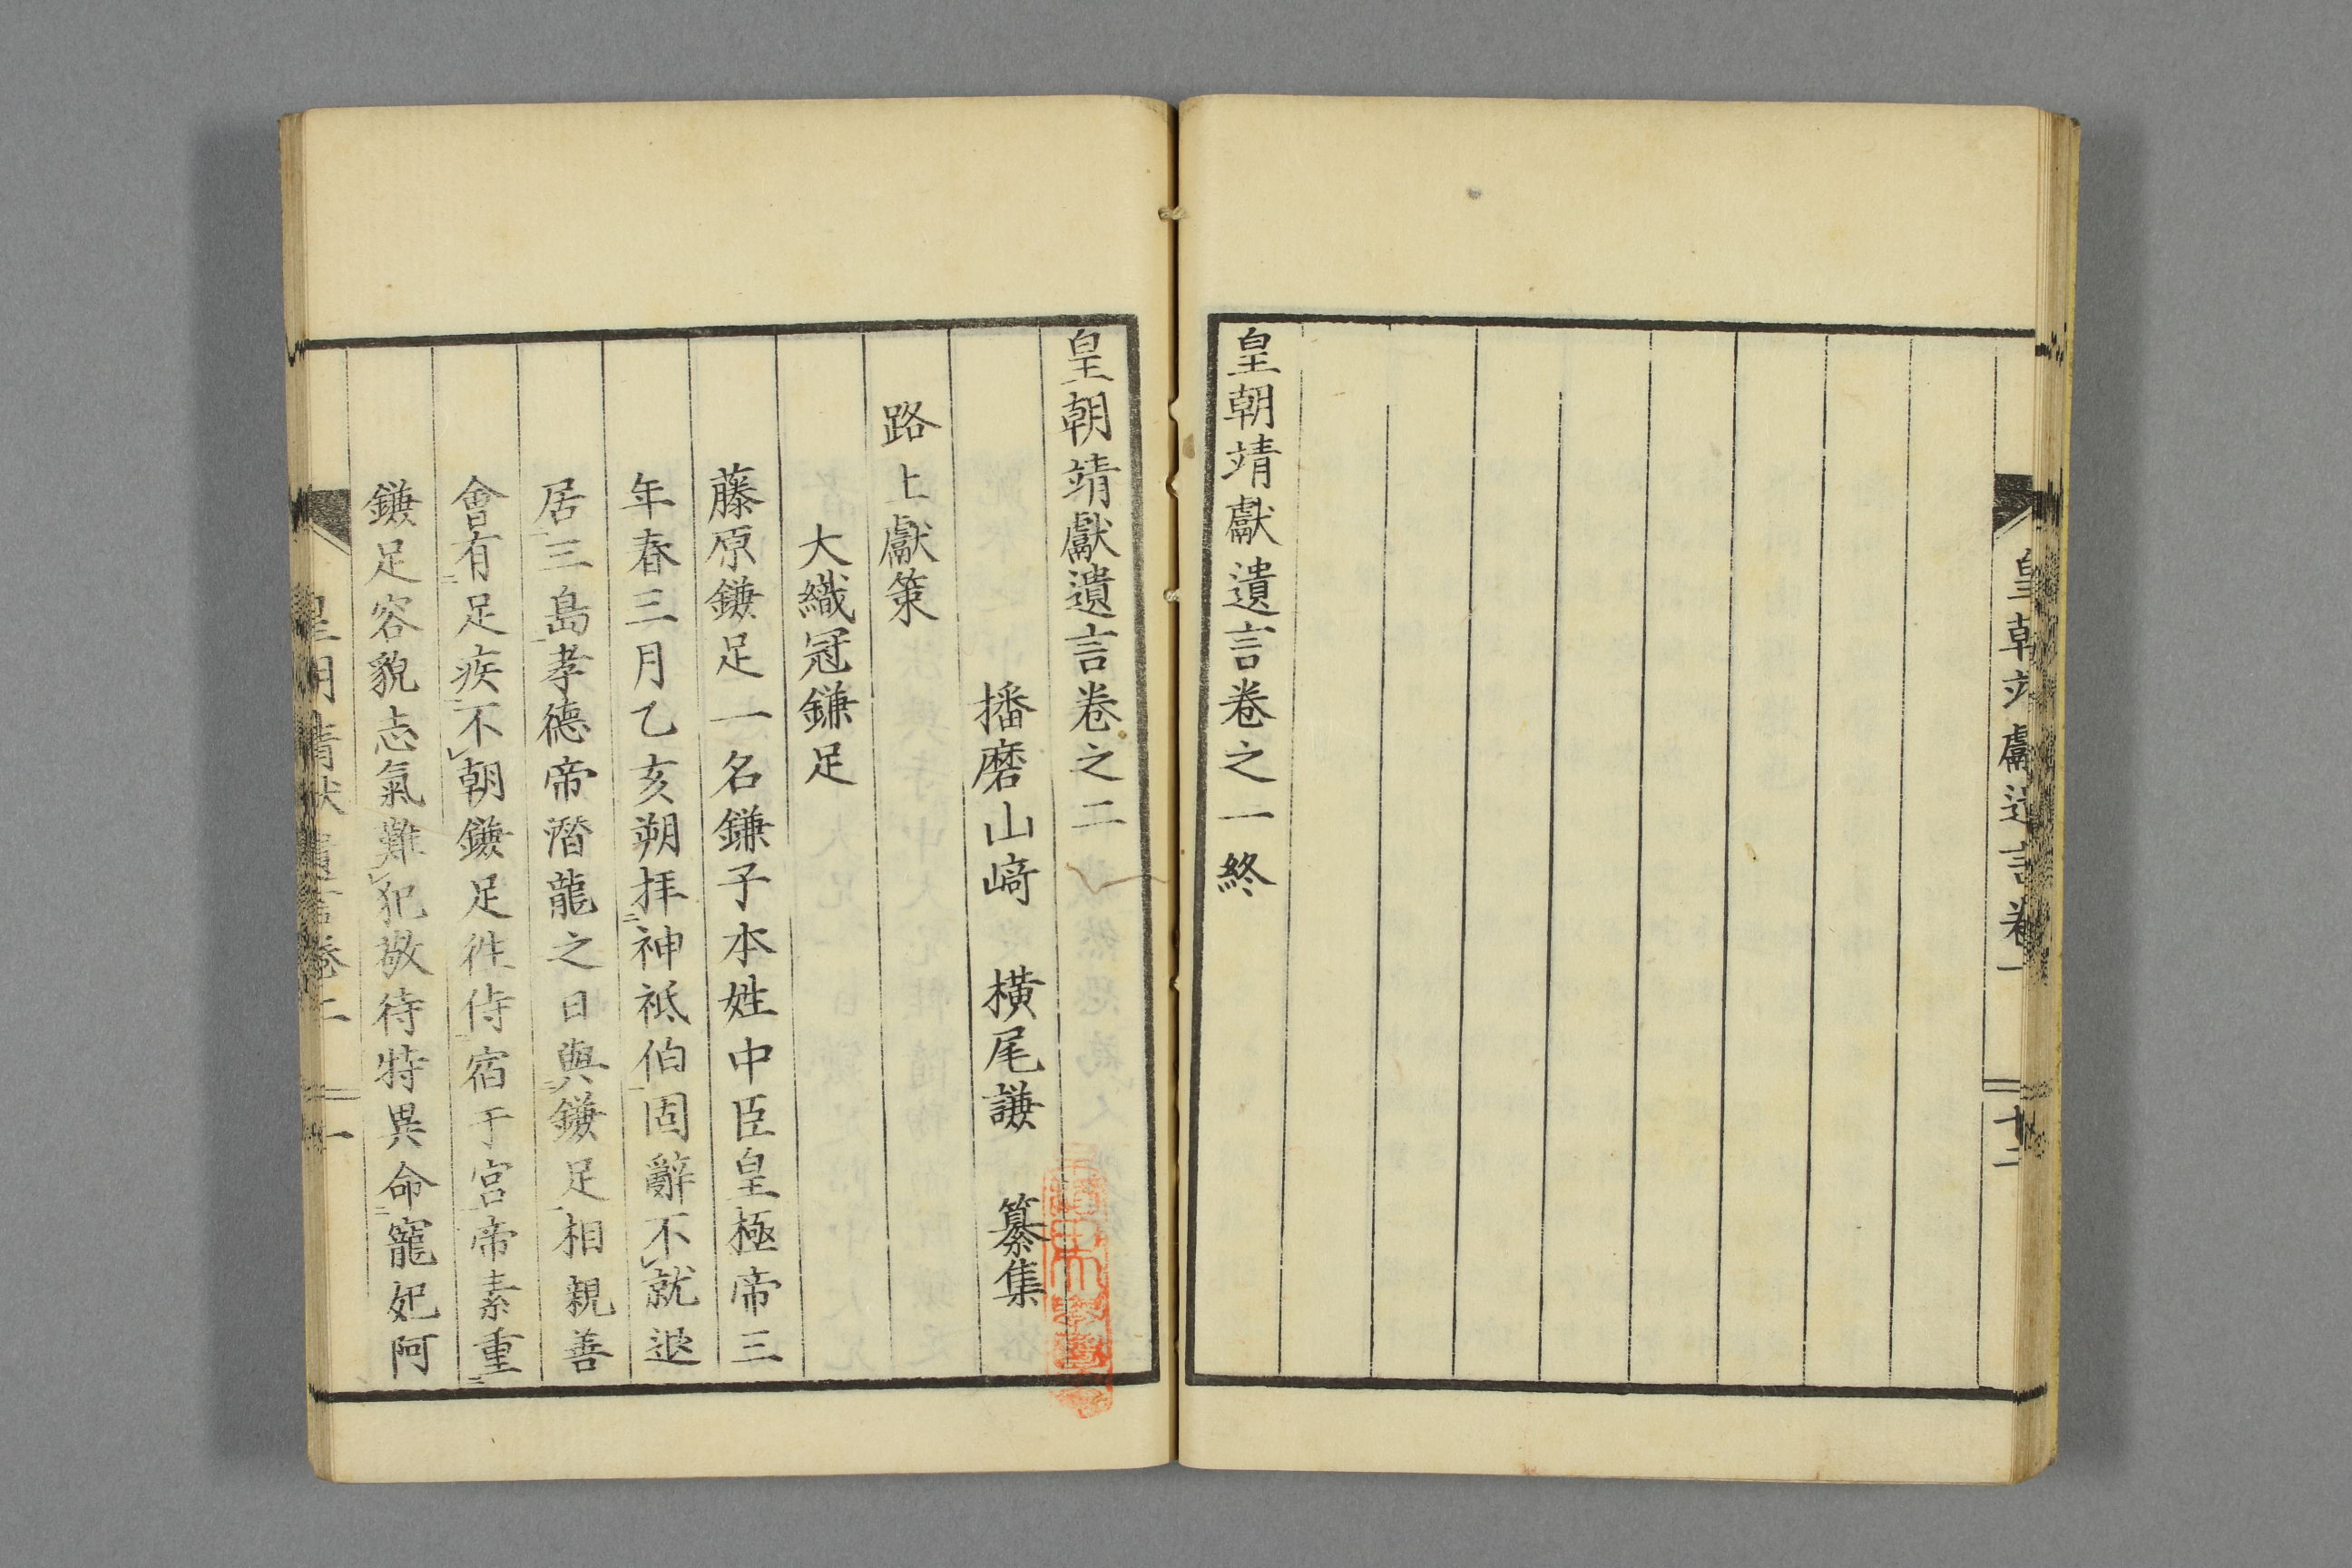 皇朝靖獻遺言卷一
十二
皇朝靖獻遺言卷之一終
皇朝靖獻遺言卷之二
播磨山﨑 橫尾謙 纂集
路上獻策
大織冠鎌足
藤原鎌足一名鎌子本姓中臣皇極帝三
年春三月乙亥朔拝神祗伯固辭不就退
居三島孝德帝潛龍之日與鎌足相親善
會有足疾不朝鎌足徃侍宿于宮帝素重
鎌足容貌志氣難犯敬待特異命寵妃阿
皇朝靖獻遺言卷二
一